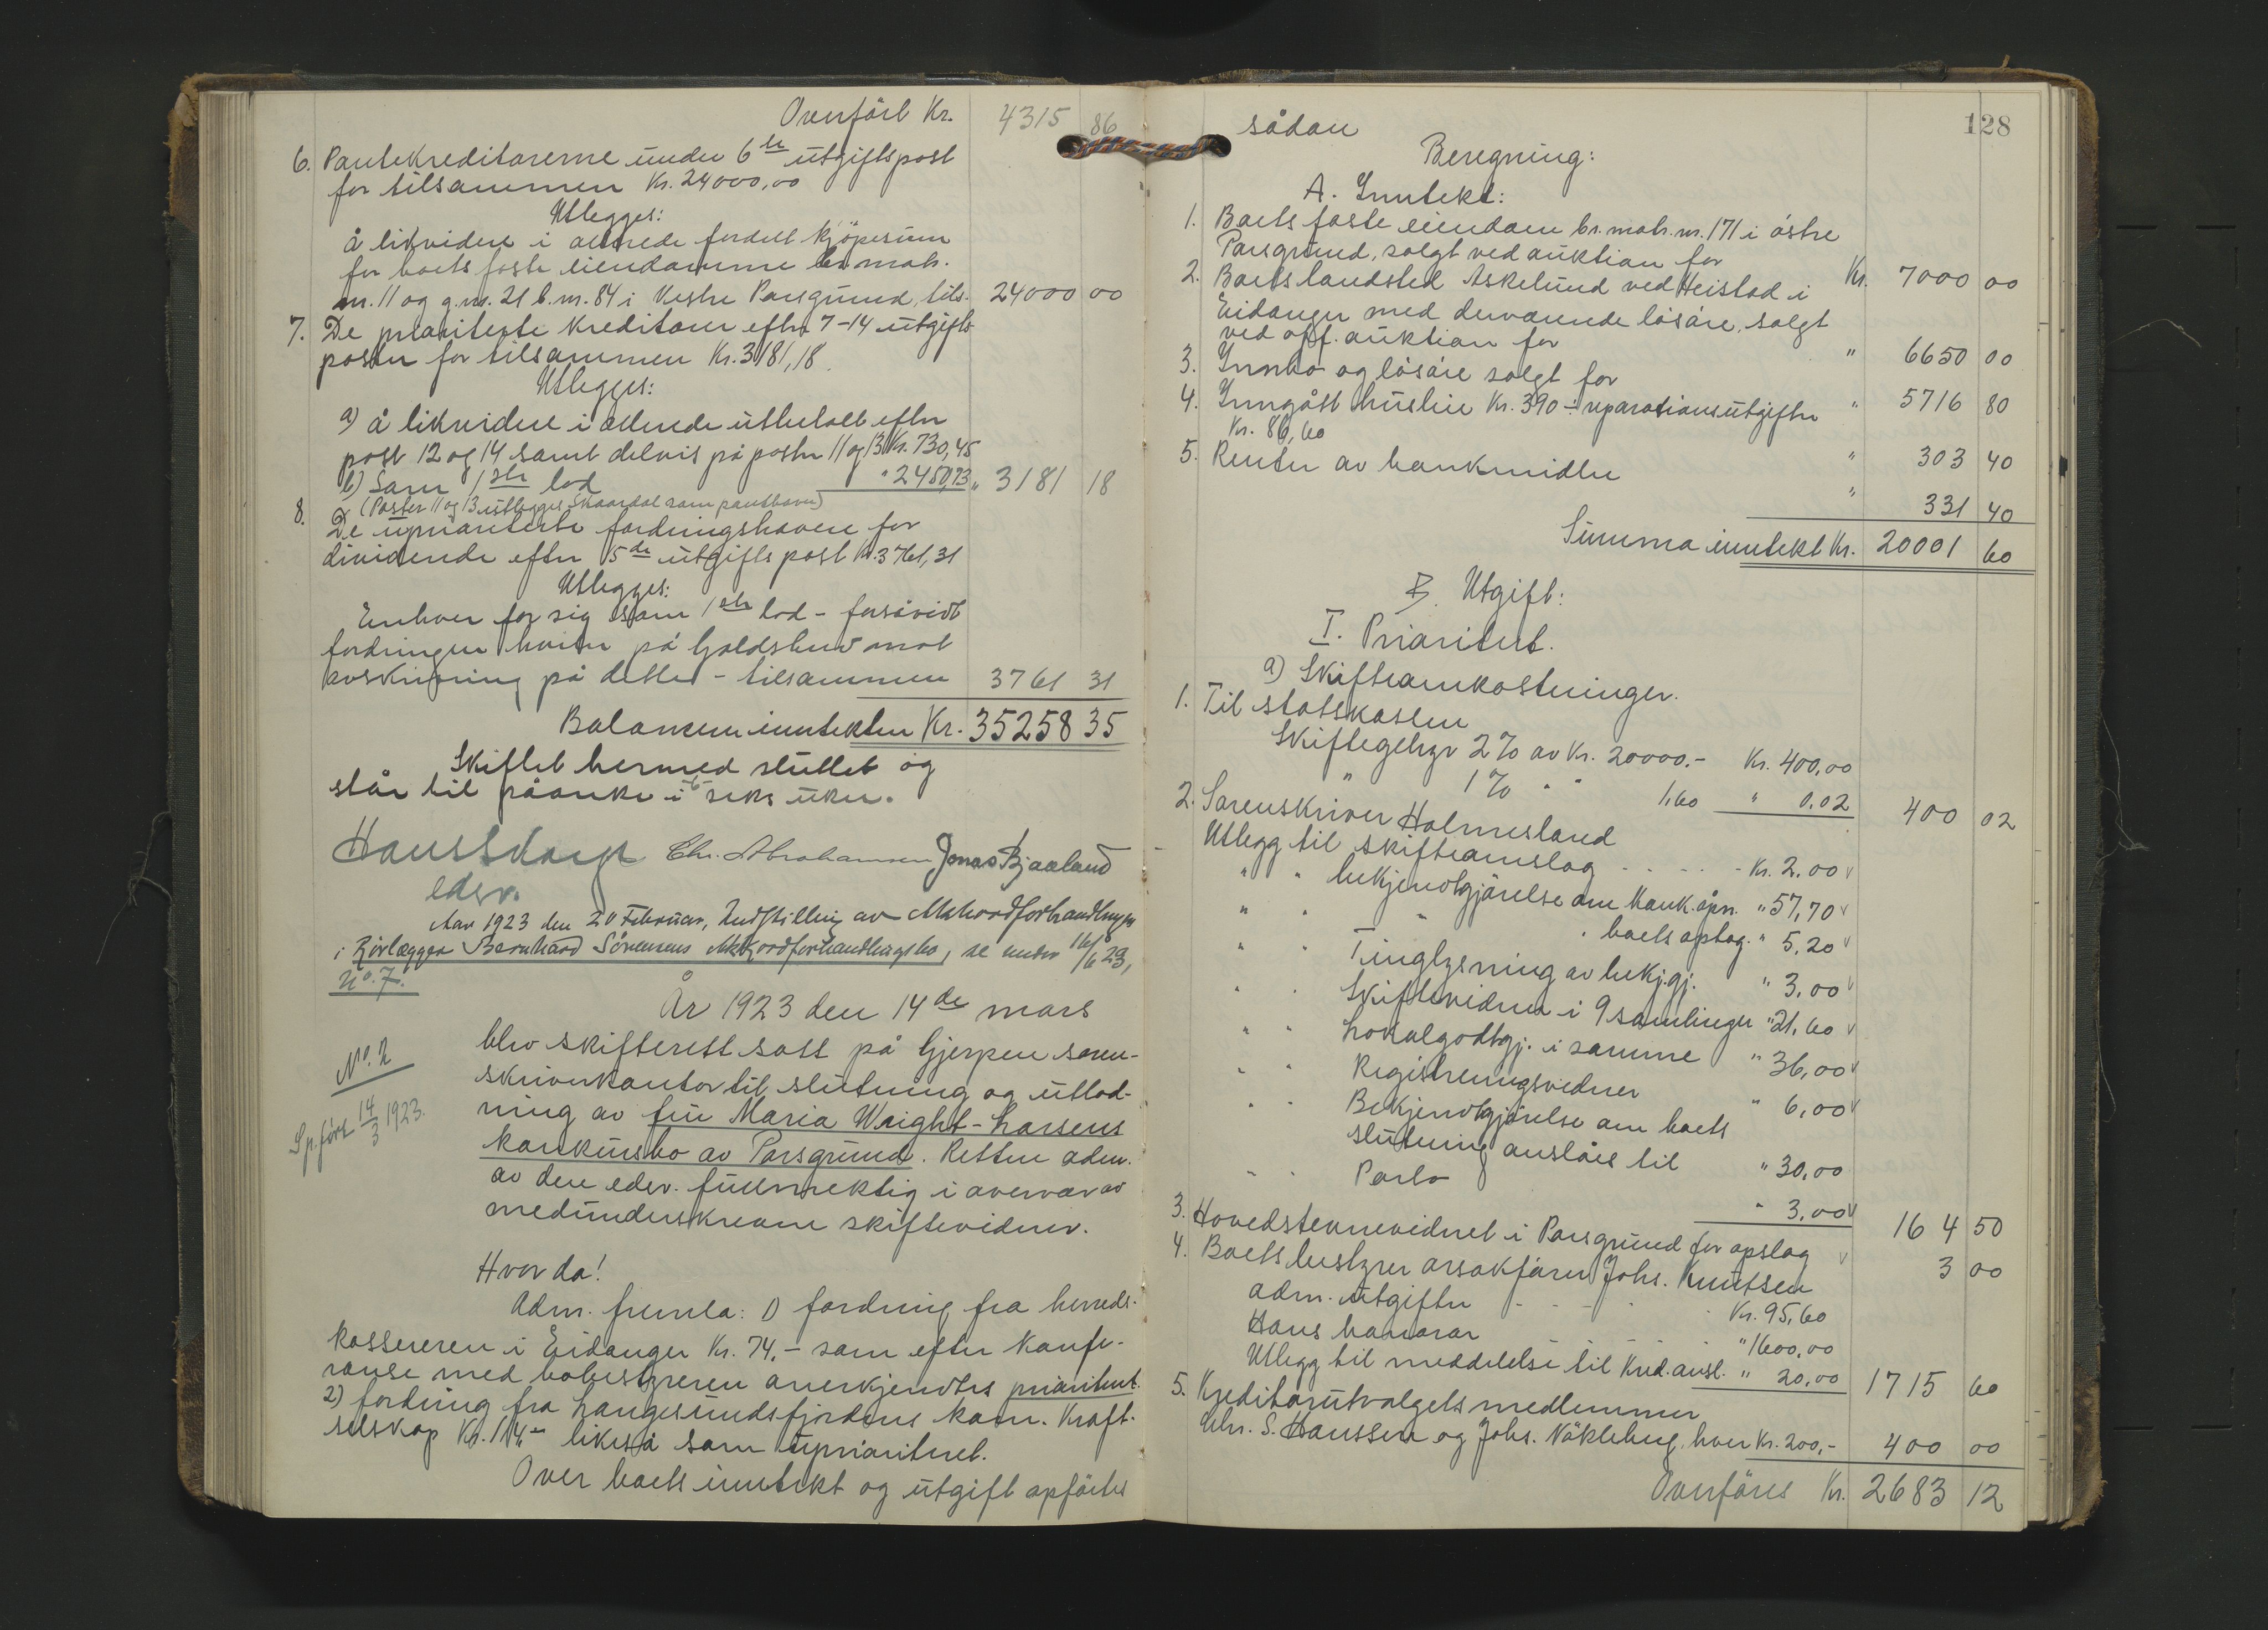 Overført Kr. 4315 86
6. Pantekreditorerne under 6te utgiftspost
for tilsammen Kr. 24000,00
Utlegges:
å likvidere i allerede fordelt kjøpesum
for boets faste eiendomme br. matr.
nr. 11 og g.nr. 21 b.nr. 84 i Vestre Porsgrund, tils. 24000 00
7. De prioriterte kreditorer efter 7-14 utgifts-
poster for tilsammen Kr. 3181,18.
Utlegges:
a) å likvidere i allerede utbetalt efter
post 12 og 14 samt delvis på poster 11 og 13 Kr. 730,45
b) Som 1ste lod " 2450,73 " 3181 18
(Poster 11 og 13 utlegges Skaardal som panthaver)
8. De uprioriterte fordringshavere for
dividende efter 15de utgiftspost Kr. 3761,31
Utlegges:
Enhver for sig som 1ste lod - forsåvidt
fordringen hviler på gjeldsbrev mot
avskrivning på dette - tilsammen 3761 31
Balanserer inntekten Kr. 35258 35
Skiftet hermed sluttet og
står til påanke i 6 seks uker.
Chr. Abrahamsen Jonas Bjaaland
edsv.
Aar 1923 den 20 Februar, Indstilling av Akkordforhandlingen
i Rørlægger Bernhard Sørensens Akkordforhandlingsbo, se under 16/6 23,
No. 7.
År 1923 den 14de mars
No. 2
Sp.ført 14/3 1923.
blev skifterett satt på Gjerpen soren-
skriverkontor til slutning og utlod-
ning av fru Maria Wright-Larsens
konkursbo av Porsgrund. Retten adm.
av den edsv. fullmektig i overvær av
medunderskrevne skiftevidner.
Hvorda!
Adm. fremla: 1) fordring fra herreds-
kassereren i Eidanger Kr. 74,- som efter konfe-
ranse med bobestyreren anerkjendtes prioritert.
2) fordring fra Langesundsfjordens kom. kraft-
selskap Kr. 114,- likeså som uprioritert.
Over boets inntekt og utgift opførtes
128
sådan
Beregning:
A. Inntekt:
1. Boets faste eiendom br. matr. nr. 171 i østre
Porsgrund, solgt ved auktion for Kr. 7000 00
2. Boets landsted Askelund ved Heistad i
Eidanger med derværende løsøre, solgt
ved off. auktion for " 6650 00
3. Innbo og løsøre solgt for " 5716 80
4. Inngått husleie Kr. 390 ÷ reparationsutgifter
Kr. 86,60 " 303 40
5. Renter av bankmidler " 331 40
Summa inntekt Kr. 20001 60
B. Utgift:
I. Prioritert.
a) Skifteomkostninger.
1. Til statskassen
Skiftegebyr 2% av Kr. 20000.- Kr. 400,00
" 1% " " 1,60 " 0,02 400 02
2. Sorenskriver Holmesland
Utlegg til skifteomslag - - - - - Kr. 2.00
" " bekjendtgjørelse om konk.åpn. " 57,70
" " " " boets optag. " 5,20
" " Tinglysning av bekj.gj. " 3,00
" " Skiftevidner i 9 samlinger " 21,60
" " Lokalgodtgj. i samme " 36,00
" " Registreringsvidner " 6,00
" " Bekjendtgjørelse om boets
slutning anslåes til " 30,00
" " Porto " 3,00 164 50
3. Hovedstevnevidnet i Porsgrund for opslag 3 00
4. Boets bestyrer orsakfører Johs. Knutsen
adm. utgifter - - - Kr. 95,60
Hans honorar - - - " 1600,00
Utlegg til meddelelse til kred. ansl. " 20,00 1715 60
5. Kreditorutvalgets medlemmer
Chr. S. Hanssen og Johs. Nökleberg, hver Kr. 200,- 400 00
Overføres Kr. 2683 12